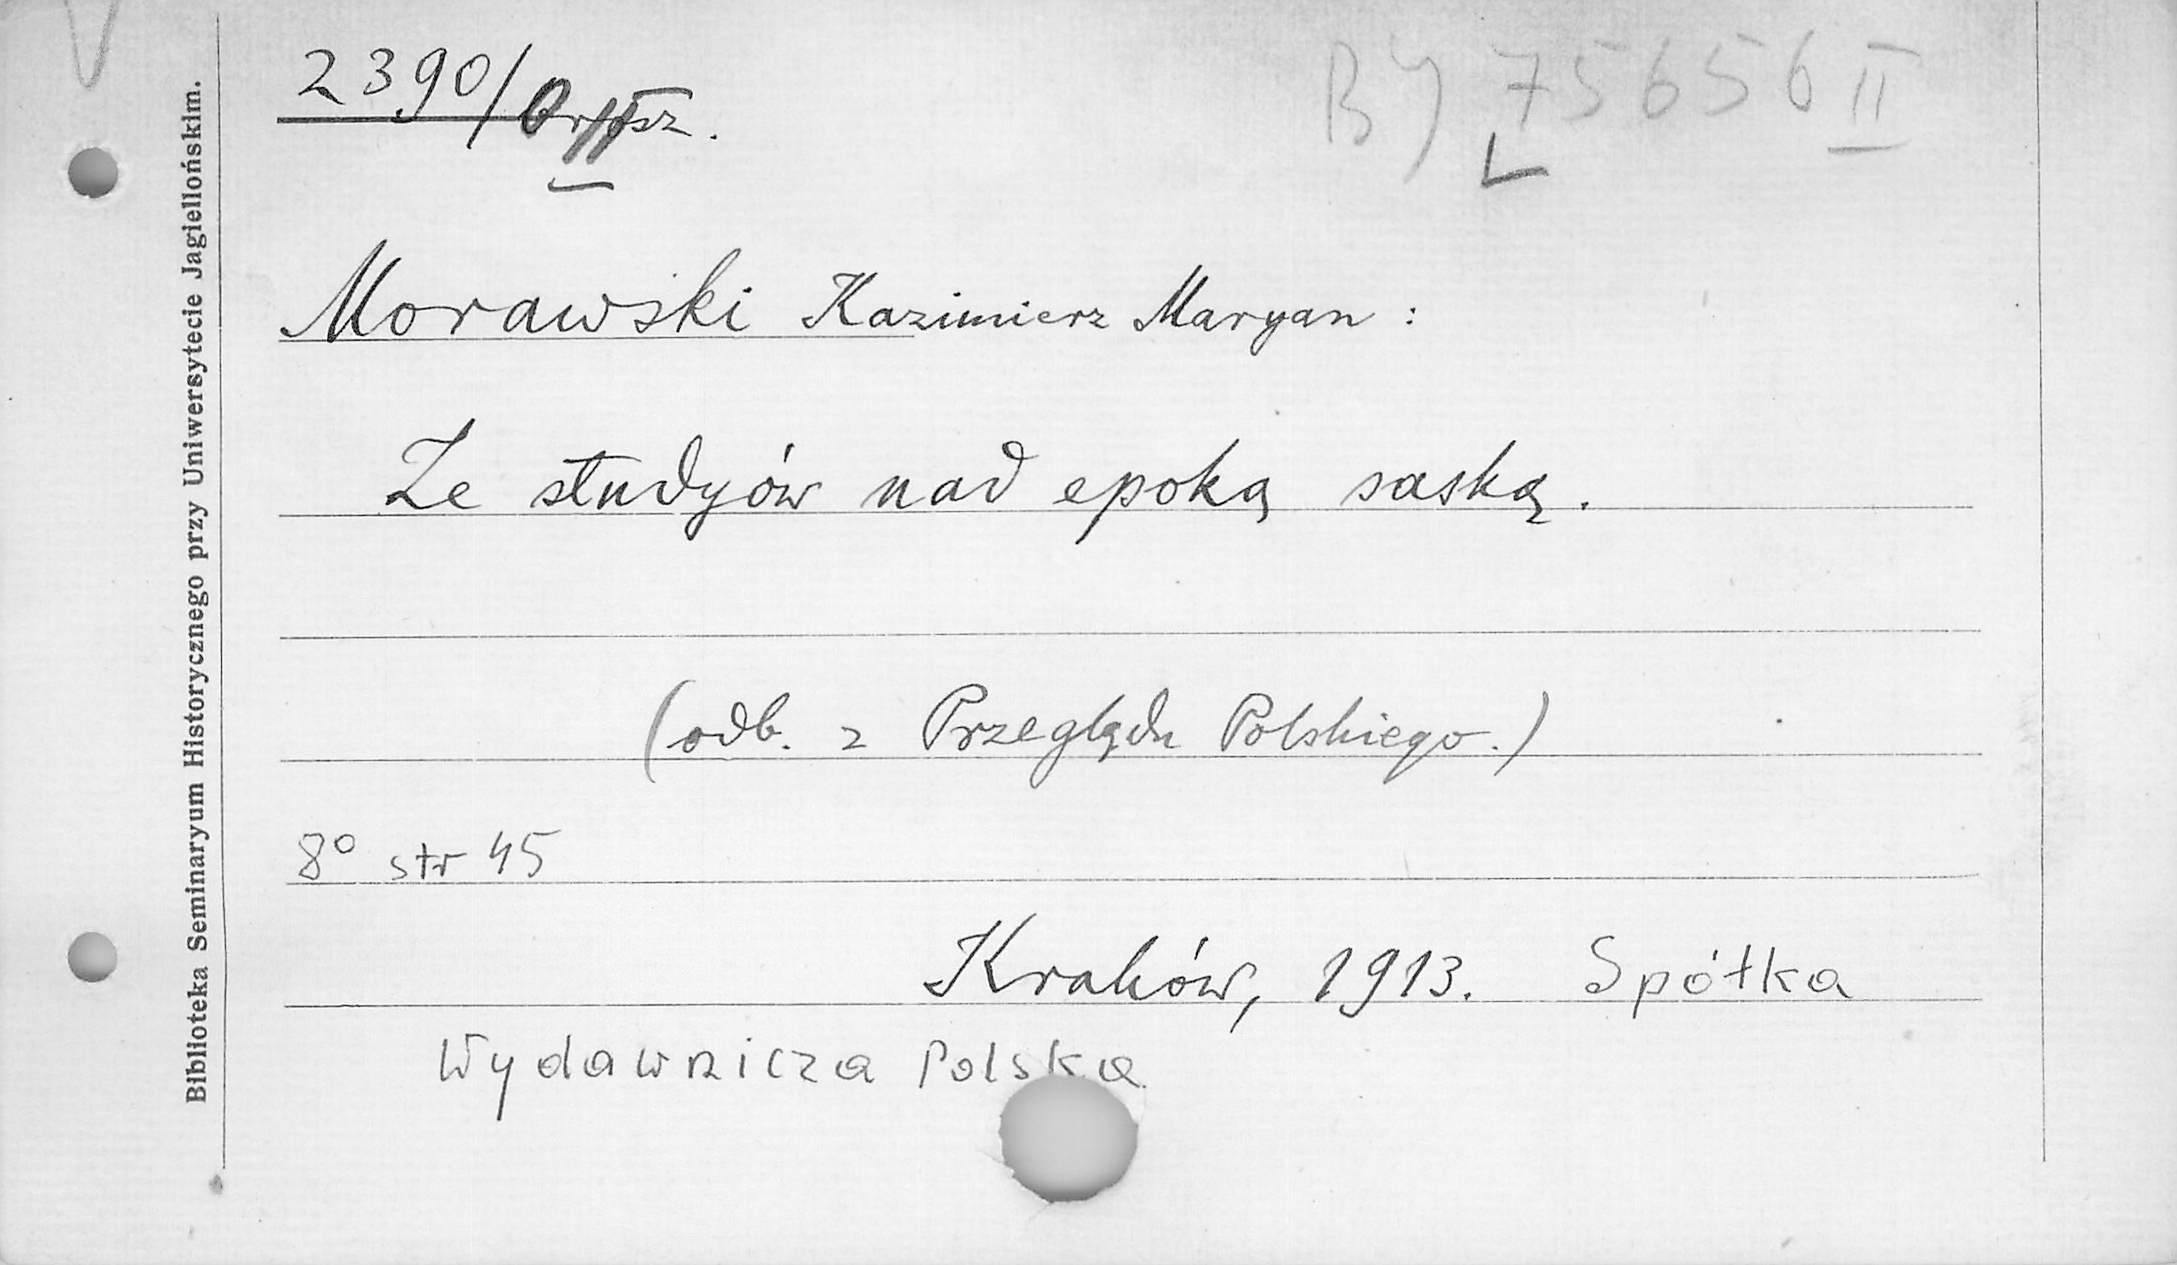 2390/
BJ 75656 II
Morawski Kazimierz Maryan :
Ze studyów nad epoką saską.
(odb. z Przeglądu Polskiego.)
8° str 45
Kraków, 1913. Spółka
Wydawnicza Polska
Biblioteka Seminaryum Historycznego przy Uniwersytecie Jagiellońskim.